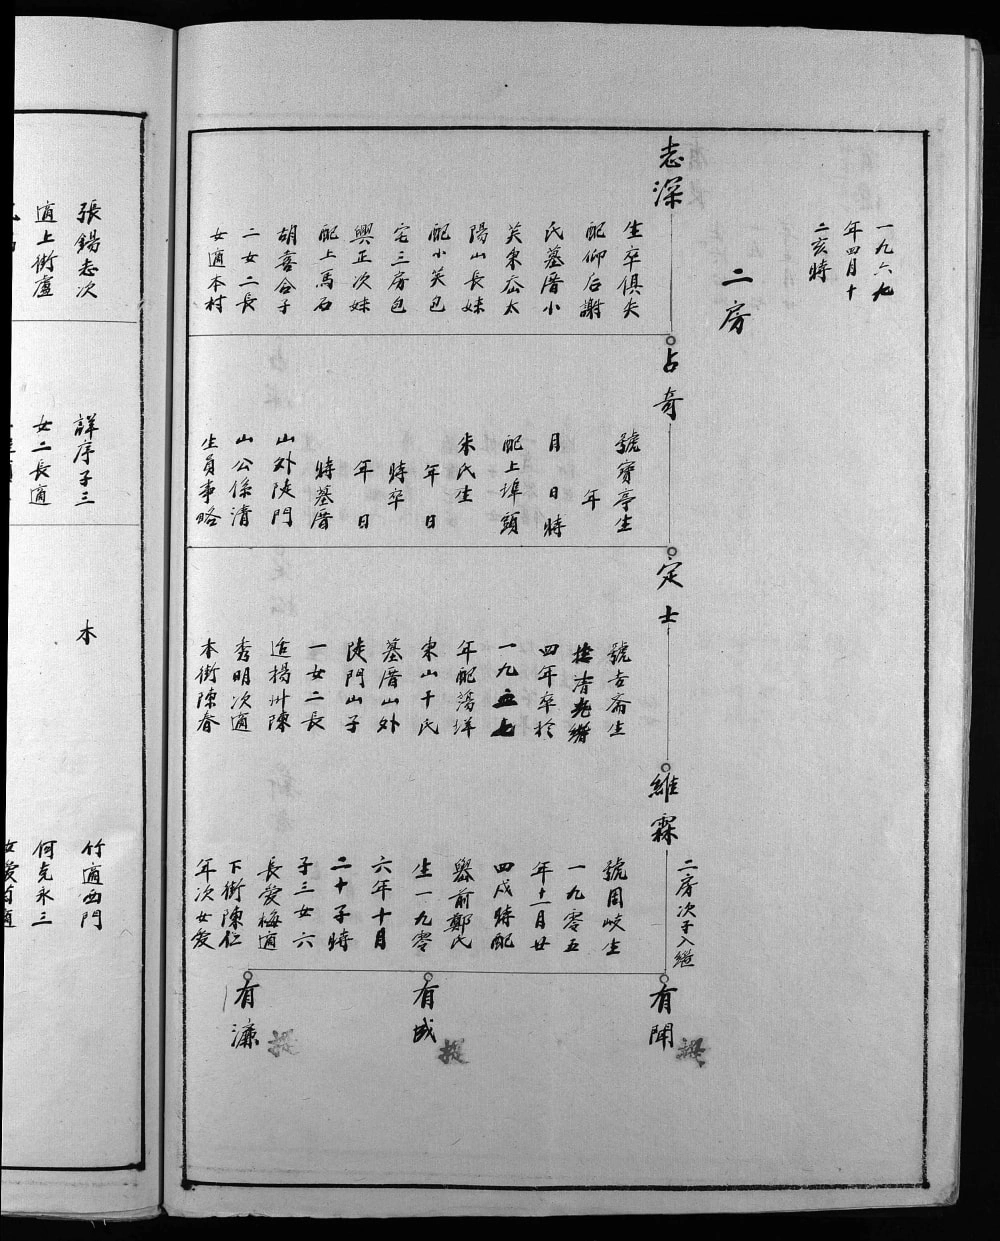 一九六九
年四月十
二亥時
二房
志深
生卒俱失
配仰后謝
氏墓厝小
芙東岙太
陽山長妹
配小芙包
宅三房包
興正次妹
配上馬石
胡喜合子
二女二長
女適本村
占奇
號寶亭生
年
月 日 時
配上埠頭
朱氏生
年 日
時卒
年 日
時墓厝
山外陡門
山公係清
生員事略
定士
號吉齋生
於清光緒
四年卒於
一九五七
年配蕩垟
東山十氏
墓厝山外
陡門山子
一女二長
適楊州陳
秀明次適
本街陳春
維霖
二房次子入繼
號周岐生
一九零五
年十一月廿
四戌時配
嶴前鄭氏
生一九零
六年十月
二十子時
子三女六
長愛梅適
下街陳仁
年次女愛
有聞
有成
有濂
張錫志次
適上街盧
詳序子三
女二長適
木
竹適西門
何克永三